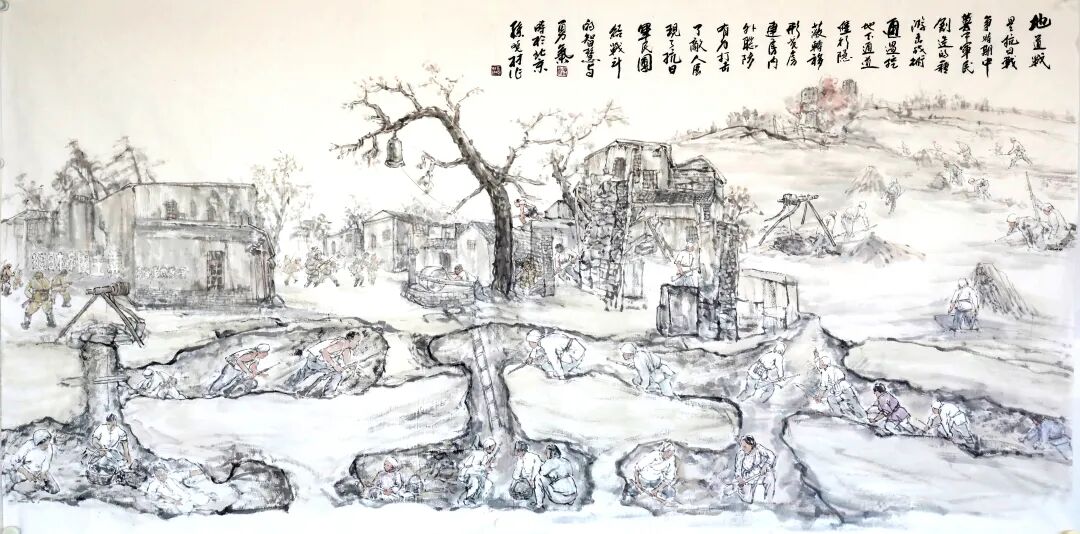 地道战
是抗日战
争时期中
军民
创造的
游击战术
通过挖
地下通道
进行隐
蔽转移
形成房
连房内
外联防
有力打击
了敌人展
现了抗日
军民团
结战斗
的智慧与
勇气
时于北京
孙 作